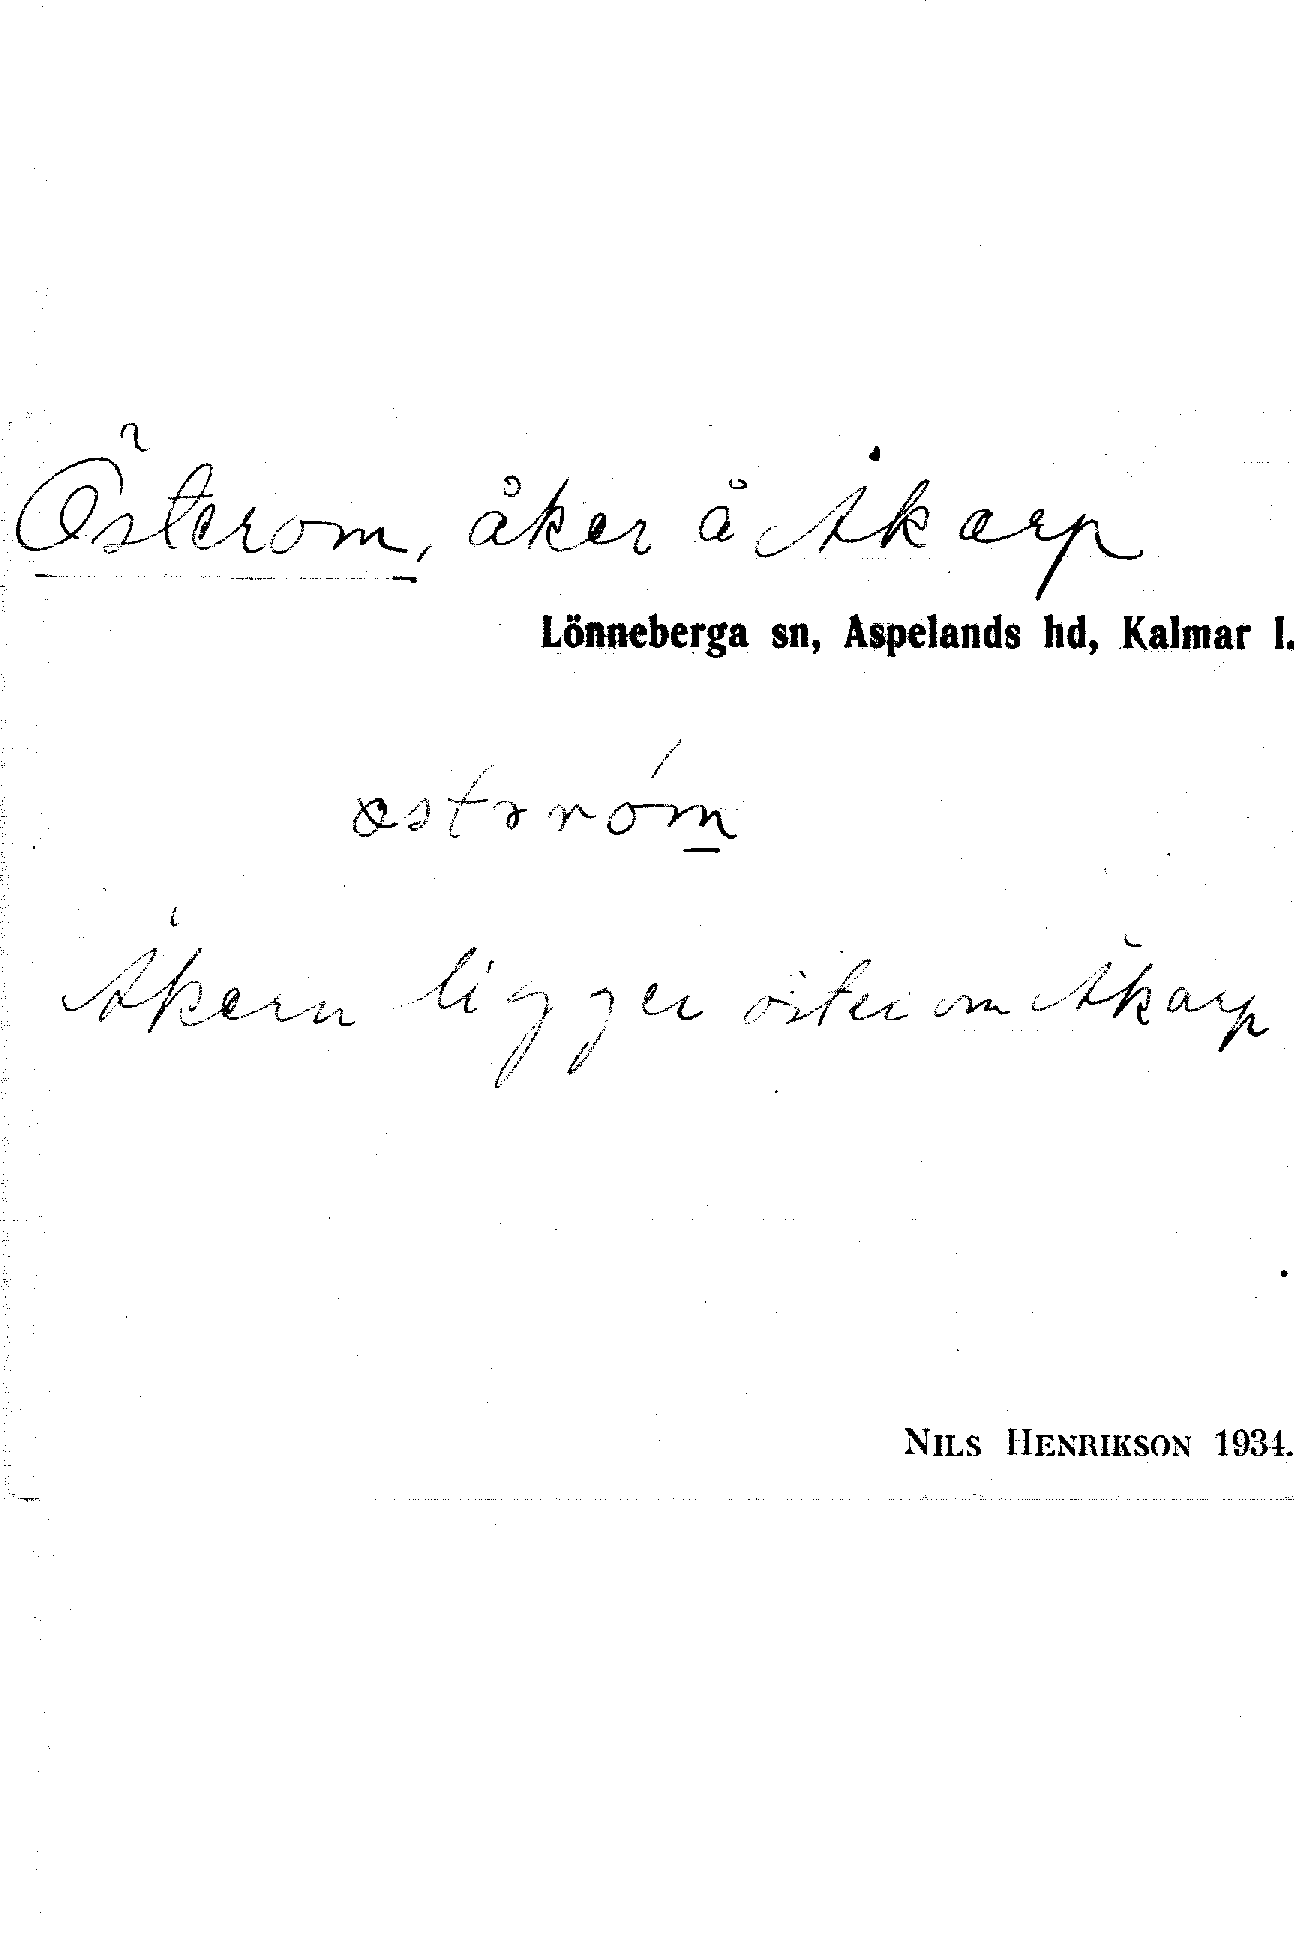 Österom, åker å Åkarp
Lönneberga sn, Aspelands hd, Kalmar l.
östərǿm
Åkern ligger öster om Åkarp
NILS HENRIKSON 1934.